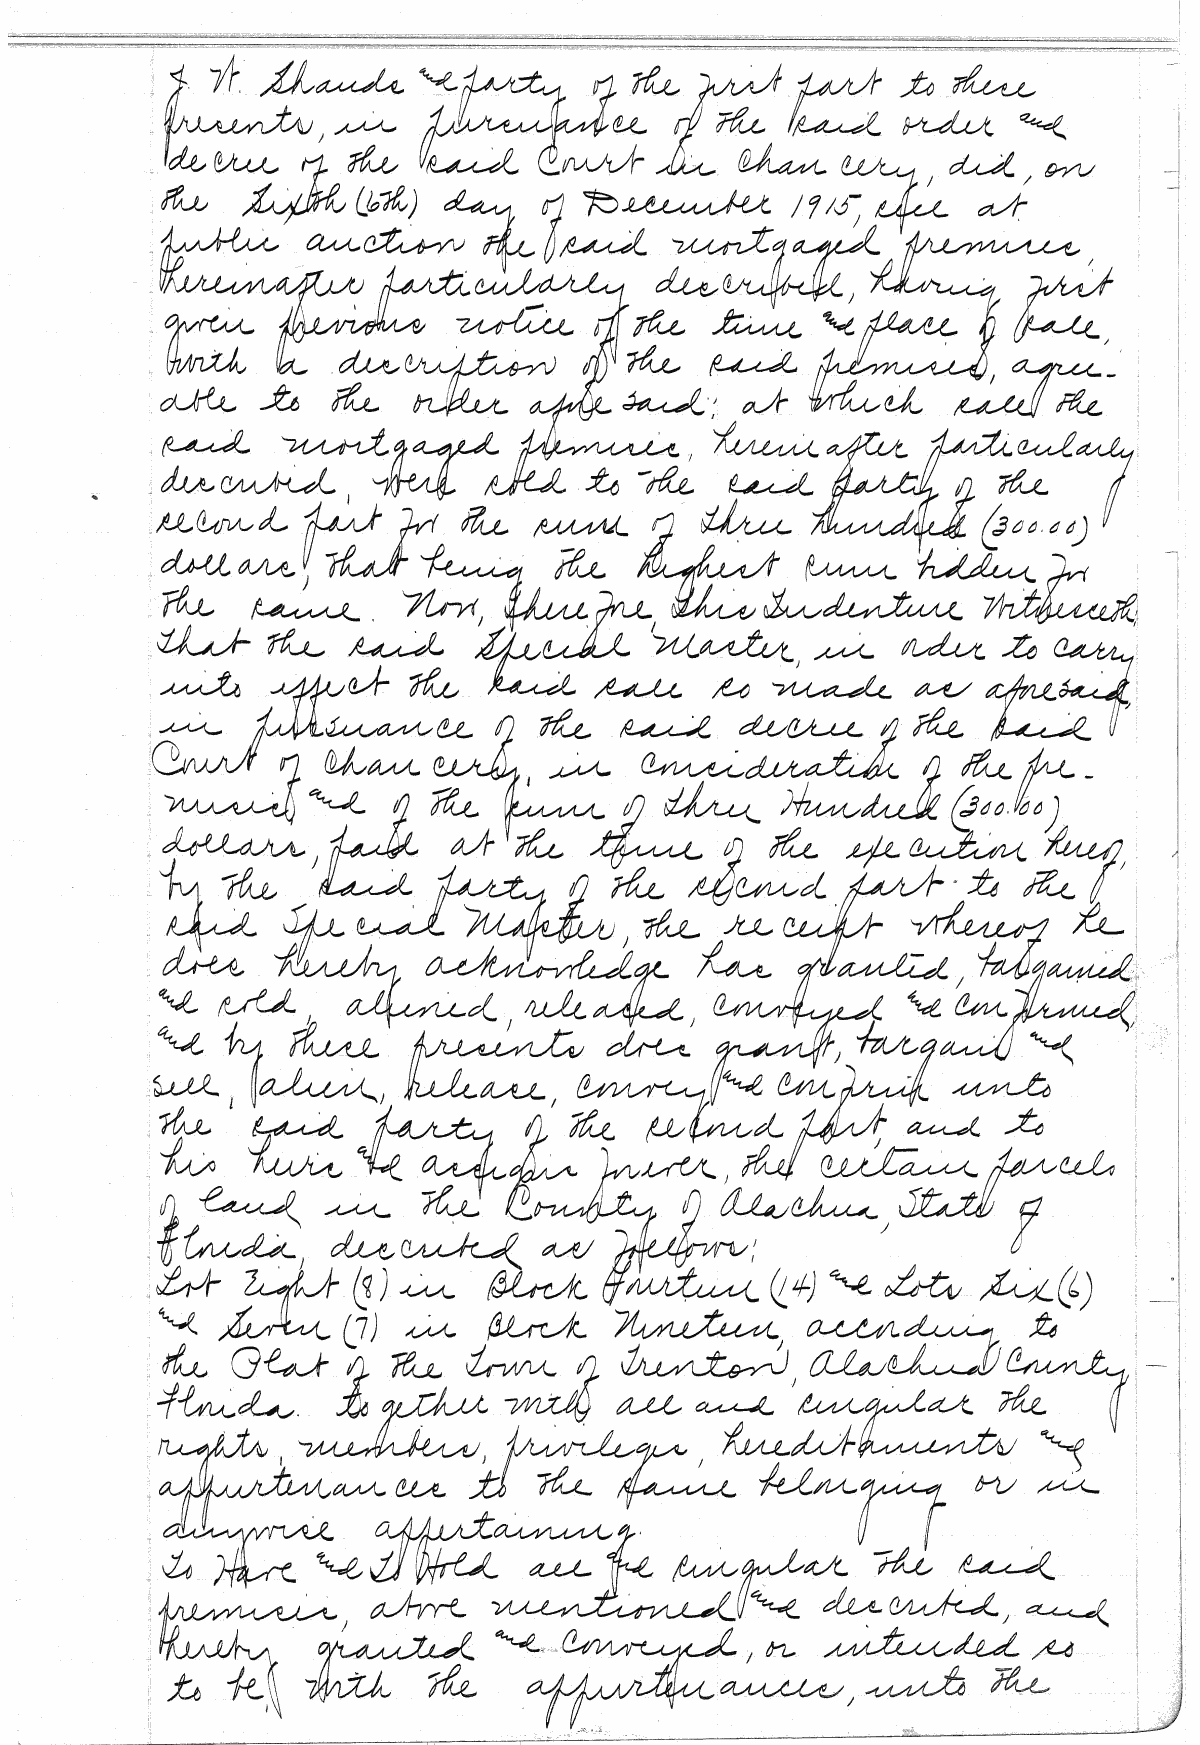 J. W. Shands and party of the first part to these
presents, in pursuance of the said order and
decree of the said Court in Chancery, did, on
the Sixth (6th) day of December 1915, sell at
public auction the said mortgaged premises,
hereinafter particularly described, having first
given previous notice of the time and place of sale,
with a description of the said premises, agree-
able to the order aforesaid; at which sale the
said mortgaged premises, hereinafter particularly
described, were sold to the said party of the
second part for the sum of Three hundred (300.00)
dollars, that being the highest sum bidden for
the same. Now, therefore, this Indenture Witnesseth,
That the said Special Master, in order to carry
into effect the said sale so made as aforesaid,
in pursuance of the said decree of the said
Court of Chancery, in consideration of the pre-
mises and of the sum of Three Hundred (300.00)
dollars, paid at the time of the execution hereof,
by the said party of the second part to the
said Special Master, the receipt whereof he
does hereby acknowledge has granted, bargained
and sold, aliened, released, conveyed and confirmed,
and by these presents does grant, bargain and
sell, alien, release, convey and confirm unto
the said party of the second part, and to
his heirs and assigns forever, the certain parcels
of land in the County of Alachua, State of
Florida, described as follows:
Lot Eight (8) in Block Fourteen (14) and Lots Six (6)
and Seven (7) in Block Nineteen, according to
the Plat of the Town of Trenton, Alachua County
Florida. together with all and singular the
rights, members, privileges, hereditaments and
appurtenances to the same belonging or in
anywise appertaining.
To Have and To Hold all and singular the said
premises, above mentioned and described, and
hereby granted and conveyed, or intended so
to be, with the appurtenances, unto the